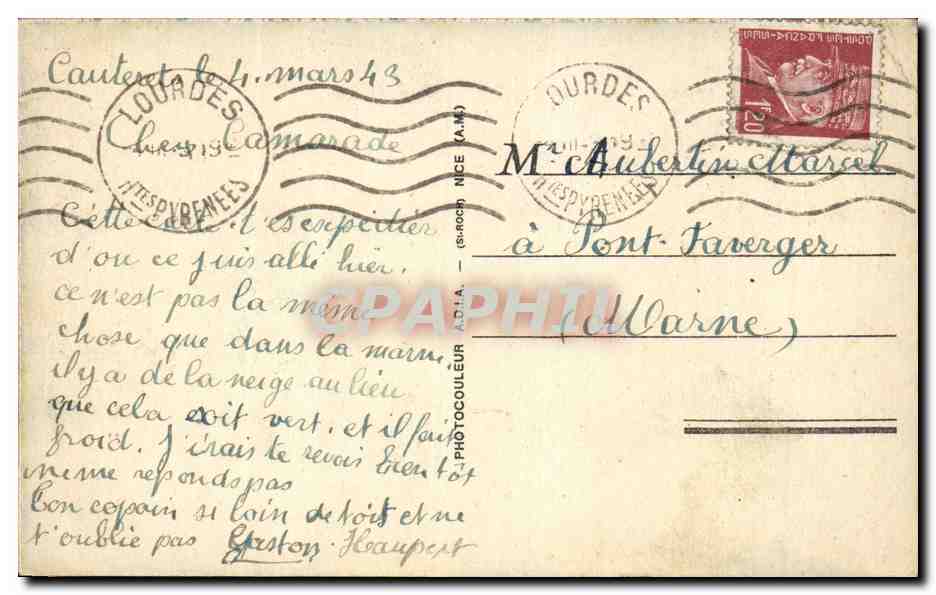 Cauterets le 4. mars 43
Cher Camarade
Cette carte t'es expédier
d'ou ce suis allé hier.
ce n'est pas la même
chose que dans la marne.
il y a de la neige au lieu
que cela soit vert. et il fait
froid. J'irais te revoir bientôt
même reponds pas
Ton copain si loin de toit et ne
t'oublie pas Gaston Haupert
LOURDES
Htes PYRENEES
PHOTOCOULEUR A.D.I.A. — (St-ROCH) NICE (A.M.)
OURDES
Htes PYRENEES
1F20
Mr Aubertin Marcel
à Pont-Faverger
(Marne)
CPAPHIL